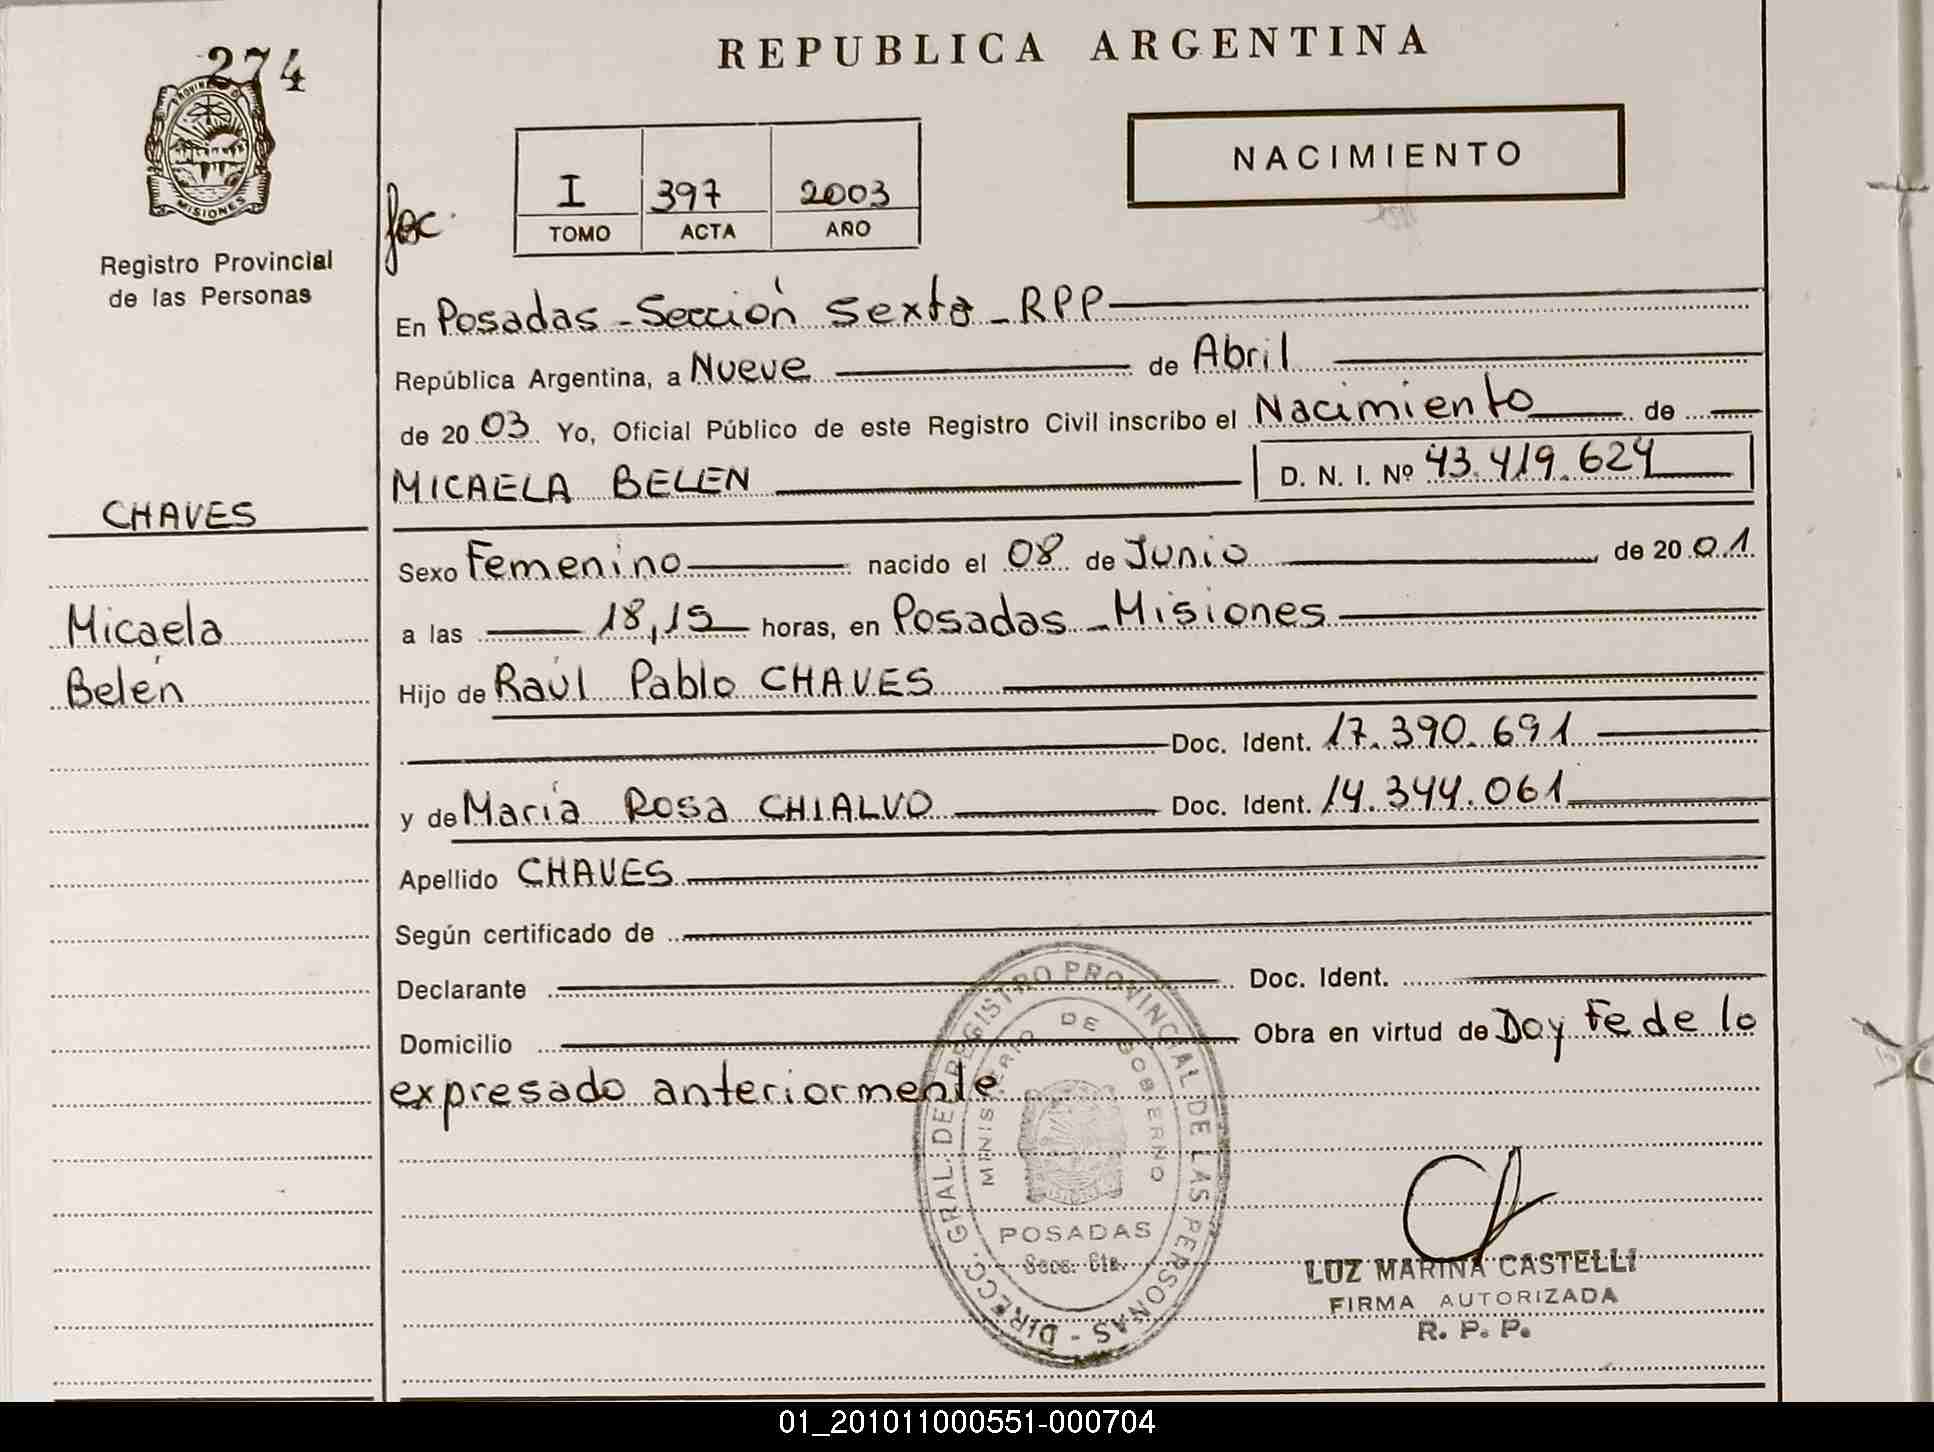 274
REPUBLICA ARGENTINA
NACIMIENTO
PROVINCIA DE
MISIONES
Registro Provincial
de las Personas
I 397 2003
TOMO ACTA AÑO
En Posadas - Sección Sexta - RPP
República Argentina, a Nueve de Abril
de 2003 Yo, Oficial Público de este Registro Civil inscribo el Nacimiento de
MICAELA BELEN D. N. I. Nº 43.419.624
CHAVES
Sexo Femenino nacido el 08 de Junio, de 2001.
Micaela
Belén
a las 18,15 horas, en Posadas - Misiones
Hijo de Raúl Pablo CHAVES
Doc. Ident. 17.390.691
y de María Rosa CHIALVO Doc. Ident. 14.344.061
Apellido CHAVES
Según certificado de
Declarante Doc. Ident.
Domicilio Obra en virtud de Doy Fe de lo
expresado anteriormente
DIRECC. GRAL. DE REGISTRO PROVINCIAL DE LAS PERSONAS -
MINISTERIO DE GOBIERNO
POSADAS
Secc. 6ta.
LUZ MARINA CASTELLI
FIRMA AUTORIZADA
R. P. P.
01_201011000551-000704